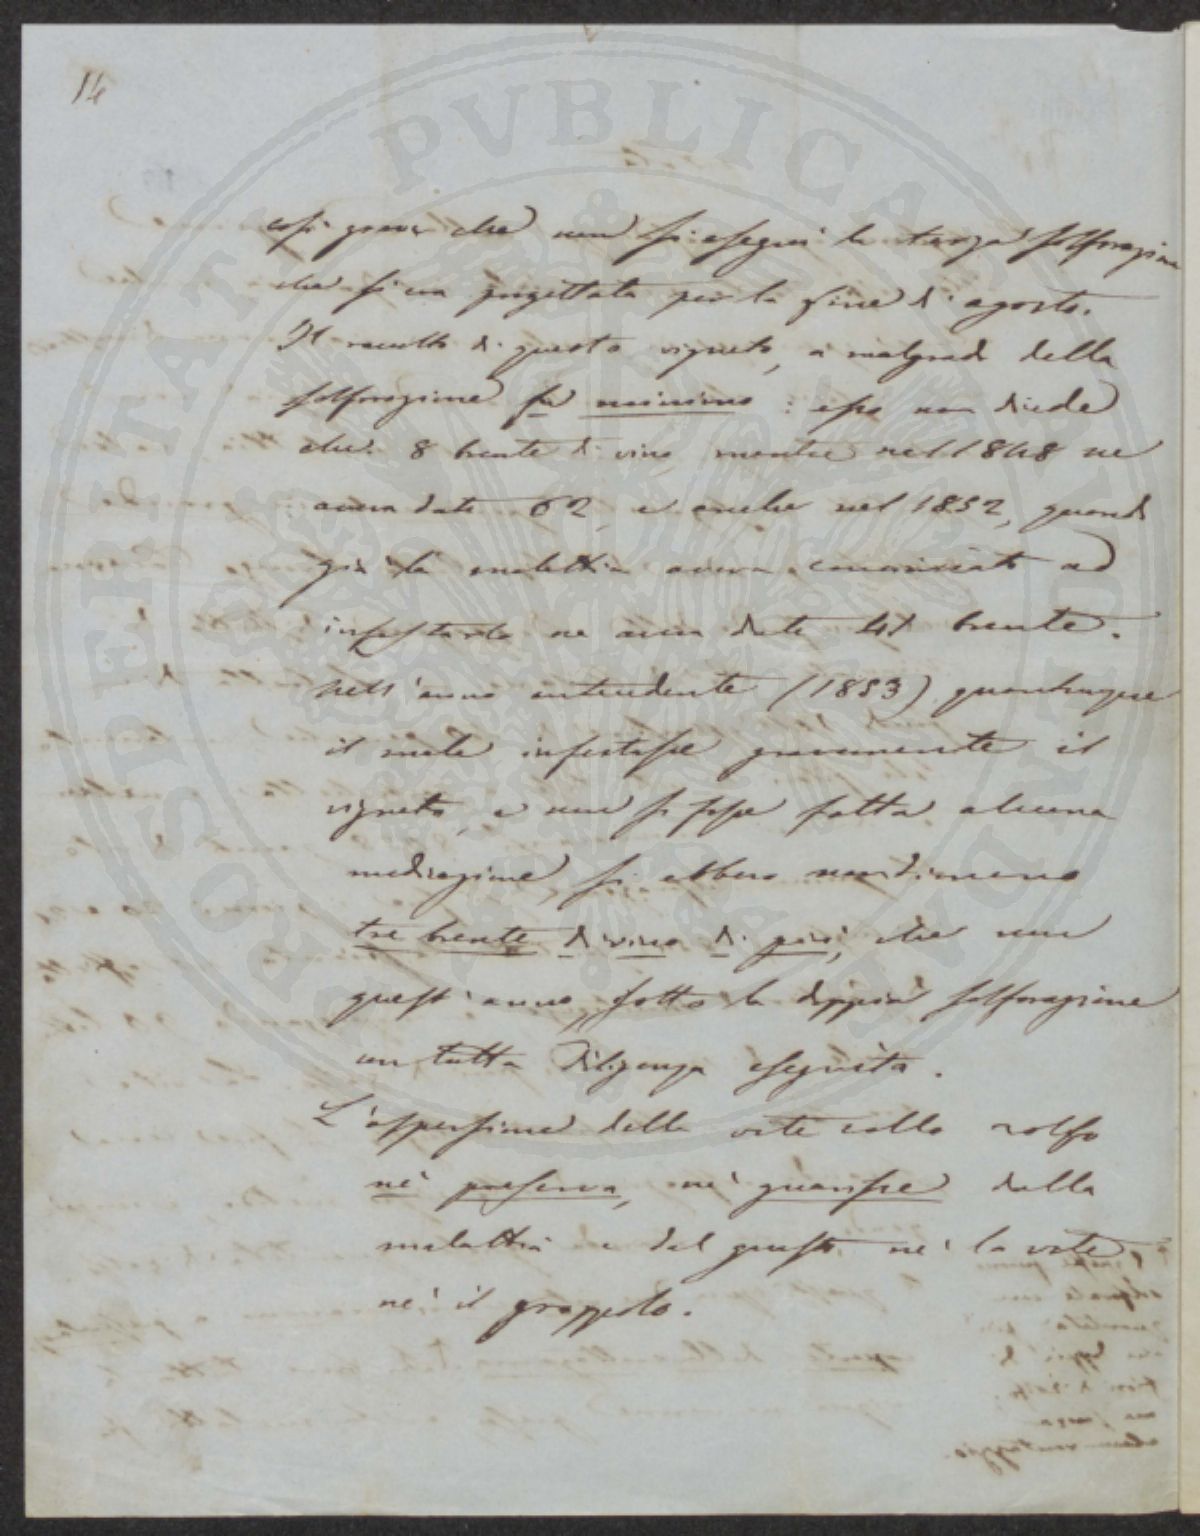 14
così grave che non si eseguì la terza solforazione
che si era progettata per la fine di agosto.
Il raccolto di questo vigneto, a malgrado della
solforazione fu minimo: esso non diede
che 8 brente di vino, mentre nel 1848 ne
aveva date 62, e anche nel 1852, quando
già la malattia aveva cominciato ad
infestarlo ne avea date 41 brente.
Nell'anno antecedente (1853) quantunque
il male infestasse gravemente il
vigneto, e non si fosse fatta alcuna
medicazione, si ebbero nondimeno
tre brente di vino di più, che non
quest'anno, sotto la doppia solforazione
con tutta diligenza eseguita.
L'aspersione della vite collo zolfo
nè preserva, nè guarisce dalla
malattia e dal guasto nè la vite
nè il grappolo.
PVBLICAE
PROSPERITATI
AVGENDAE